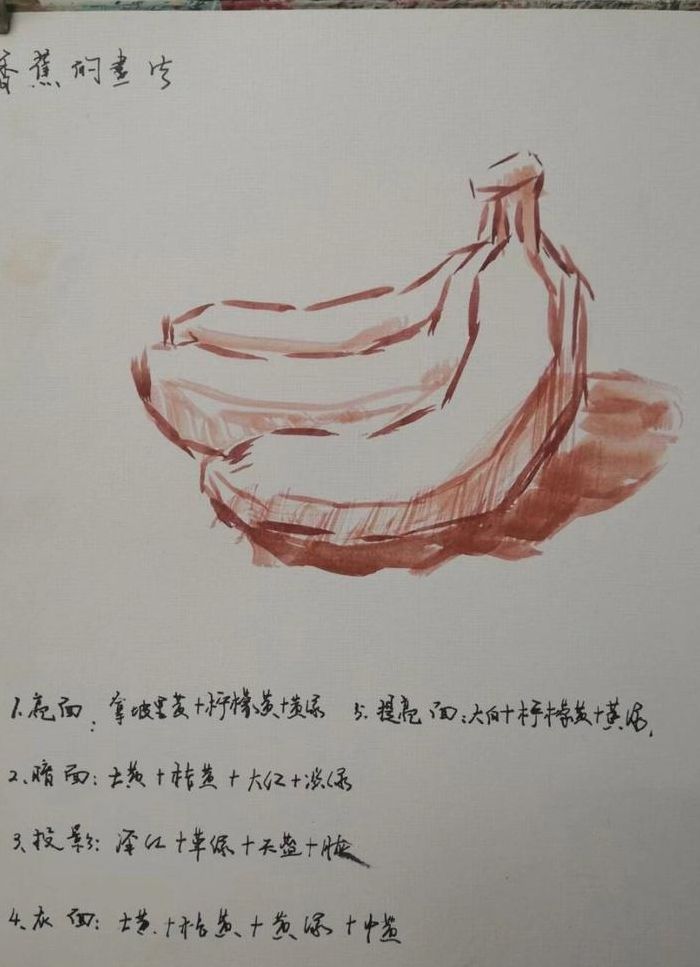 香蕉的画法
1.亮面:拿坡里黄+柠檬黄+黄绿 5.提亮面:大白+柠檬黄+黄绿.
2.暗面:土黄+桔黄+大红+淡绿
3.投影:深红+草绿+天蓝+
4.灰面:土黄.+桔黄+黄绿+中黄